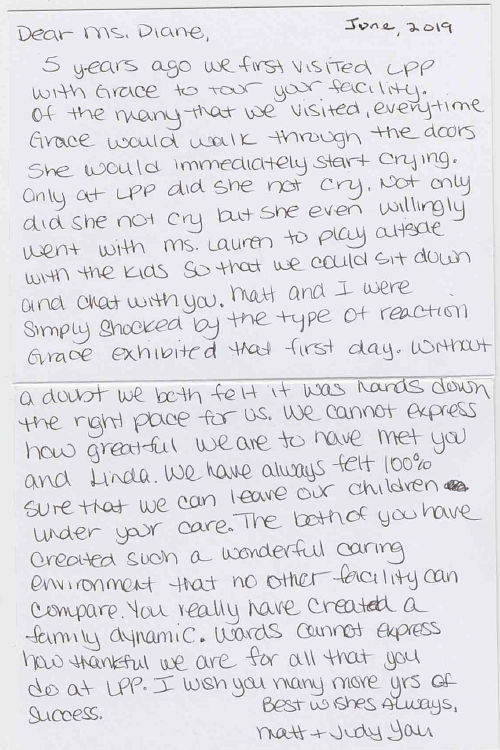 Dear Ms. Diane,
June, 2019
5 years ago we first visited LPP
with Grace to tour your facility.
Of the many that we visited, everytime
Grace would walk through the doors
She would immediately start crying.
Only at LPP did she not cry. Not only
did she not cry but she even willingly
went with Ms. Lauren to play outside
with the kids so that we could sit down
and chat with you. Matt and I were
Simply Shocked by the type of reaction
Grace exhibited that first day. Without
a doubt we both felt it was hands down
the right place for us. We cannot express
how greatful we are to have met you
and Linda. We have always felt 100%
sure that we can leave our children
under your care. The both of you have
Created such a wonderful caring
environment that no other facility can
Compare. You really have created a
family dynamic. Words cannot express
how thankful we are for all that you
do at LPP. I wish you many more yrs of
Success.
Best wishes Always,
Matt + Judy Yau